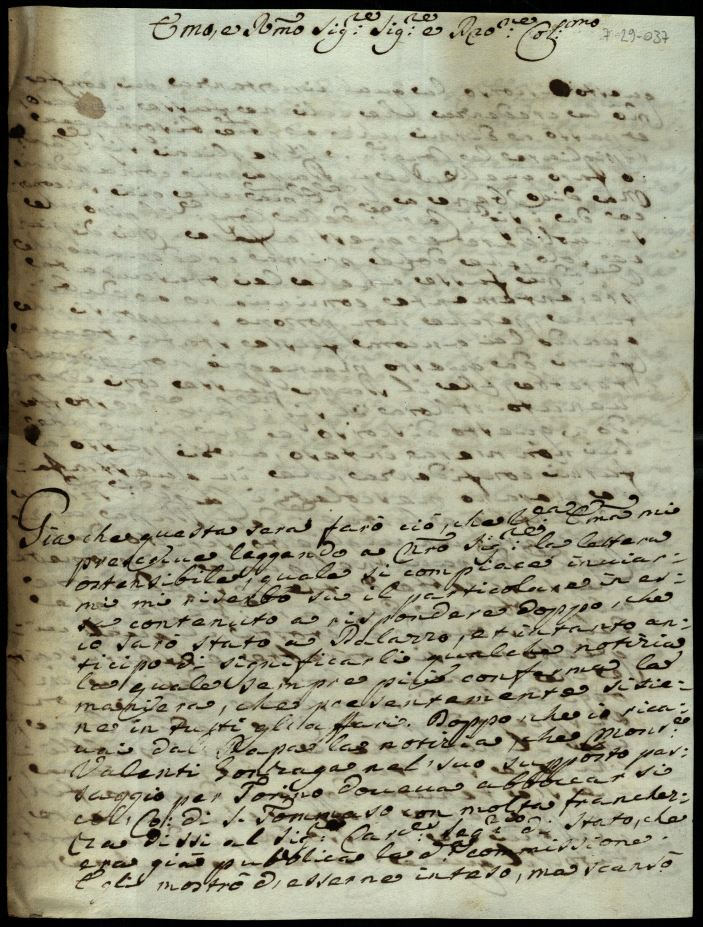 Emo, e Rmo Sig:re Sig:re e Pro:ne Col:mo
7-29-037
Già che questa sera farò ciò, che l'Ea Vma mi
prescrive leggendo a Nro Sig:re la lettera
ostensibile, quale si compiace inviar-
mi mi riserbo su il particolare in es-
sa contenuto a rispondere doppo, che
io sarò stato a Palazzo, et intanto an-
ticipo di significarli qualche notizia
la quale sempre più conferma la
maniera, che presentemente si tie-
ne in tutti gli affari. Doppo, che io rica-
vai dal Papa la notizia, che Monsre
Valenti Gonzaga nel suo supposto pas-
saggio per Torino doveva abboccarsi
col Co: di S. Tommaso con molta franchez-
za dissi al Sigre Carle Segrio di Stato, che
era già pubblica la da commissione.
Egli mostrò d'esserne inteso, ma scansò